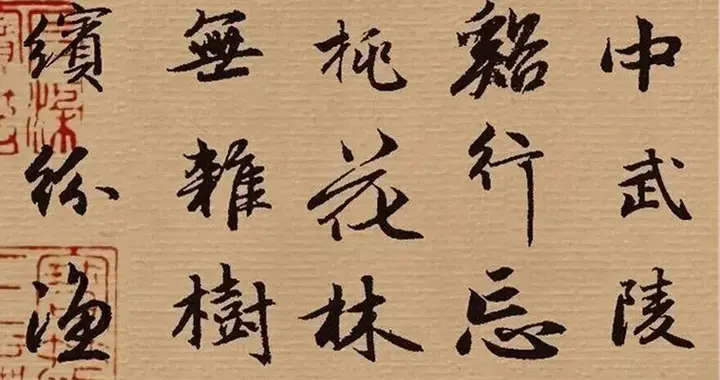 中武陵
谿行忘
桃花林
無雜樹
繽紛漁